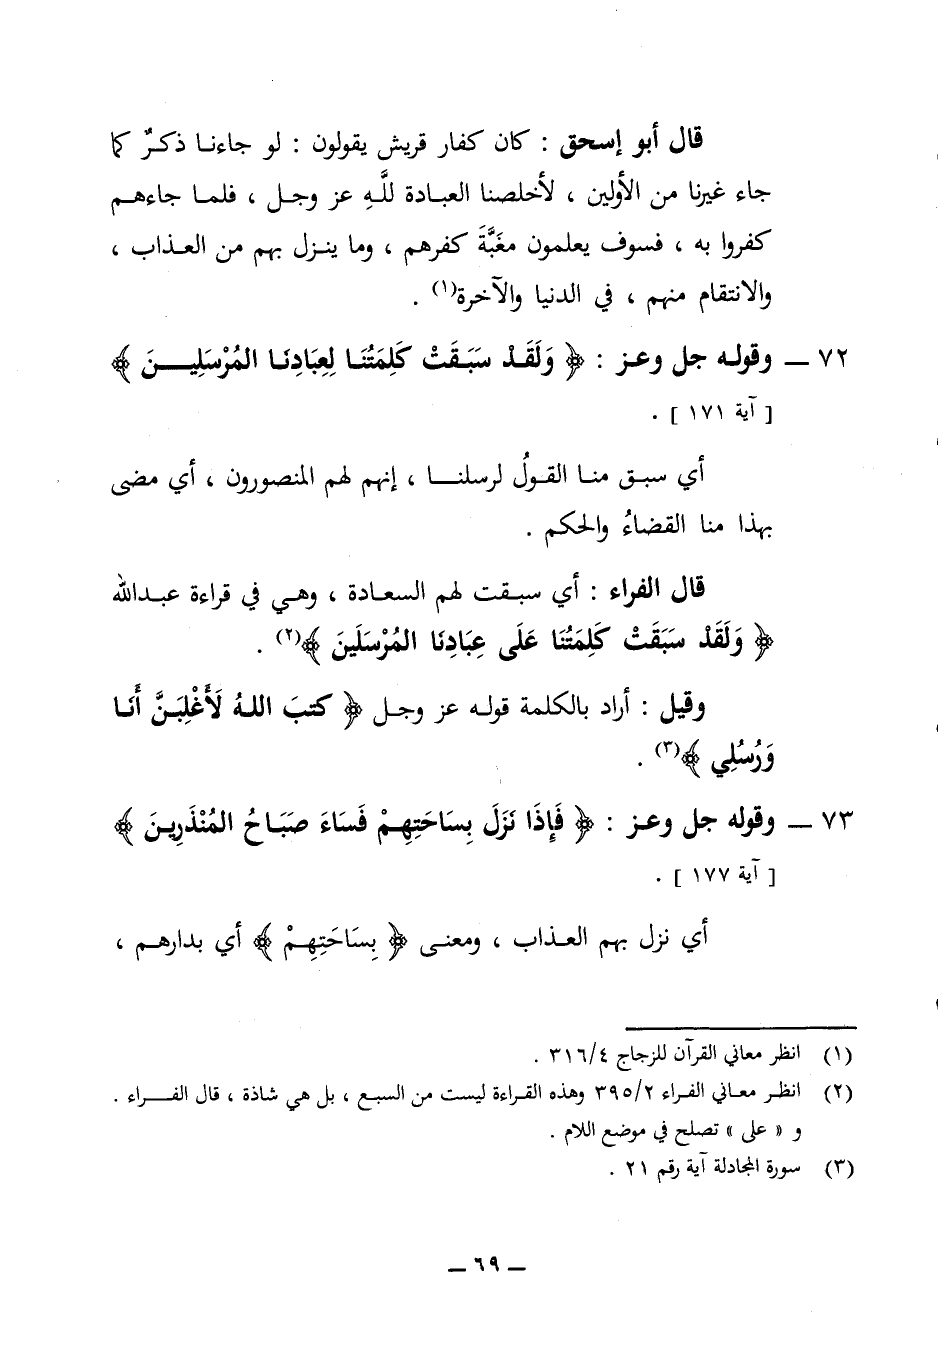 قال أبو إسحق : كان كفار قريش يقولون : لو جاءنا ذكرٌ كما
جاء غيرنا من الأولين ، لأخلصنا العبادة للَّهِ عز وجل ، فلما جاءهم
كفروا به ، فسوف يعلمون مغبَّةَ كفرهم ، وما ينزل بهم من العذاب ،
والانتقام منهم ، في الدنيا والآخرة(١) .
٧٢ ــ وقوله جل وعز : ﴿ وَلَقَدْ سَبَقَتْ كَلِمَتُنَا لِعِبَادِنَا المُرْسَلِينَ ﴾
[ آية ١٧١ ] .
أي سبق منا القولُ لرسلنا ، إنهم لهم المنصورون ، أي مضى
بهذا منا القضاءُ والحكم .
قال الفراء : أي سبقت لهم السعادة ، وهي في قراءة عبدالله
﴿ وَلَقَدْ سَبَقَتْ كَلِمَتُنَا عَلَى عِبَادِنَا المُرْسَلَينَ ﴾(٢) .
وقيل : أراد بالكلمة قوله عز وجل ﴿ كتبَ اللهُ لَأَغْلِبَنَّ أَنَا
وَرُسُلِي ﴾(٣) .
٧٣ ــ وقوله جل وعز : ﴿ فَإِذَا نَزَلَ بِسَاحَتِهِمْ فَسَاءَ صَبَاحُ المُنْذَرِينَ ﴾
[ آية ١٧٧ ] .
أي نزل بهم العذاب ، ومعنى ﴿ بِسَاحَتِهِمْ ﴾ أي بدارهم ،
(١) انظر معاني القرآن للزجاج ٣١٦/٤ .
(٢) انظر معاني الفراء ٣٩٥/٢ وهذه القراءة ليست من السبع ، بل هي شاذة ، قال الفراء .
و « على » تصلح في موضع اللام .
(٣) سورة المجادلة آية رقم ٢١ .
ــ ٦٩ ــ